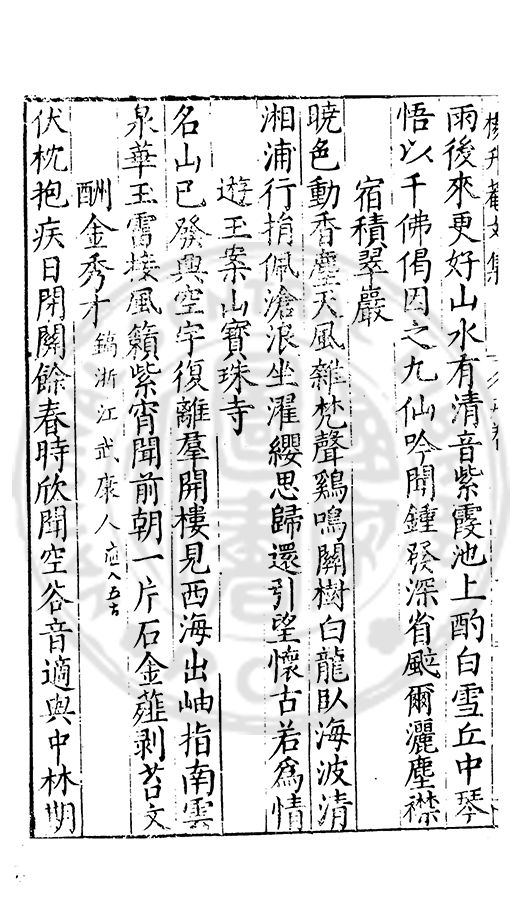 楊升菴文集
雨後來更好山水有清音紫霞池上酌白雪丘中琴
悟以千佛偈因之九仙吟聞鍾發深省颯爾灑塵襟
宿積翠巖
曉色動香塵天風雜梵聲鷄鳴關樹白龍臥海波清
湘浦行捐佩滄浪坐濯纓思歸還引望懷古若爲情
遊玉案山寶珠寺
名山已發興空宇復離羣開樓見西海出岫指南雲
泉華玉霤接風籟紫霄聞前朝一片石金薤剥苔文
酬金秀才 鎬浙江武康人
伏枕抱疾日閉關餘春時欣聞空谷音適與中林期